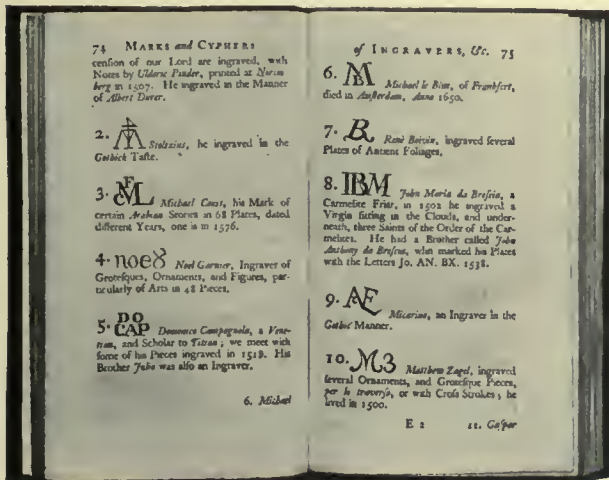 74 MARKS and CYPHERS
cension of our Lord are ingraved, with
Notes by Ulderic Pinder, printed at Norim
berg in 1507. He ingraved in the Manner
of Albert Durer.
2. Stoltzius, he ingraved in the
Gothick Taste.
3. Michael Coxis, his Mark of
certain Stories in 68 Plates, dated
different Years, one is in 1576.
4. noe8 Noel Garnier, Ingraver of
Grotesques, Ornaments, and Figures, par-
ticularly of Arts in 48 Pieces.
5. DO
CAP Domenico Campagnola, a Vene-
tian, and Scholar to Titian; we meet with
some of his Pieces ingraved in 1518. His
Brother Julio was also an Ingraver.
6. Michael
of INGRAVERS, &c. 75
6. M Michael le Blon, of Frankfort,
died in Amsterdam, Anno 1650.
7. R René Boivin, ingraved several
Plates of Antient Foliages.
8. IBM John Maria da Brescia, a
Carmelite Friar, in 1502 he ingraved a
Virgin sitting in the Clouds, and under-
neath, three Saints of the Order of the Car-
melites. He had a Brother called John
Anthony da Brescia, who marked his Plates
with the Letters Jo. AN. BX. 1538.
9. Æ Micarino, an Ingraver in the
Gothic Manner.
10. M3 Matthew Zagel, ingraved
several Ornaments, and Grotesque Pieces,
per lo traverso, or with Cross Strokes; he
lived in 1500.
E 2 11. Gaspar